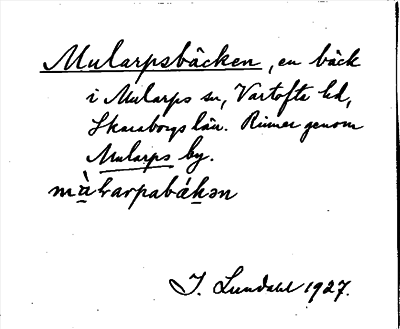 Mularpsbäcken, en bäck
i Mularps sn, Vartofta hd,
Skaraborgs län. Rinner genom
Mularps by.
J. Lundahl 1927.